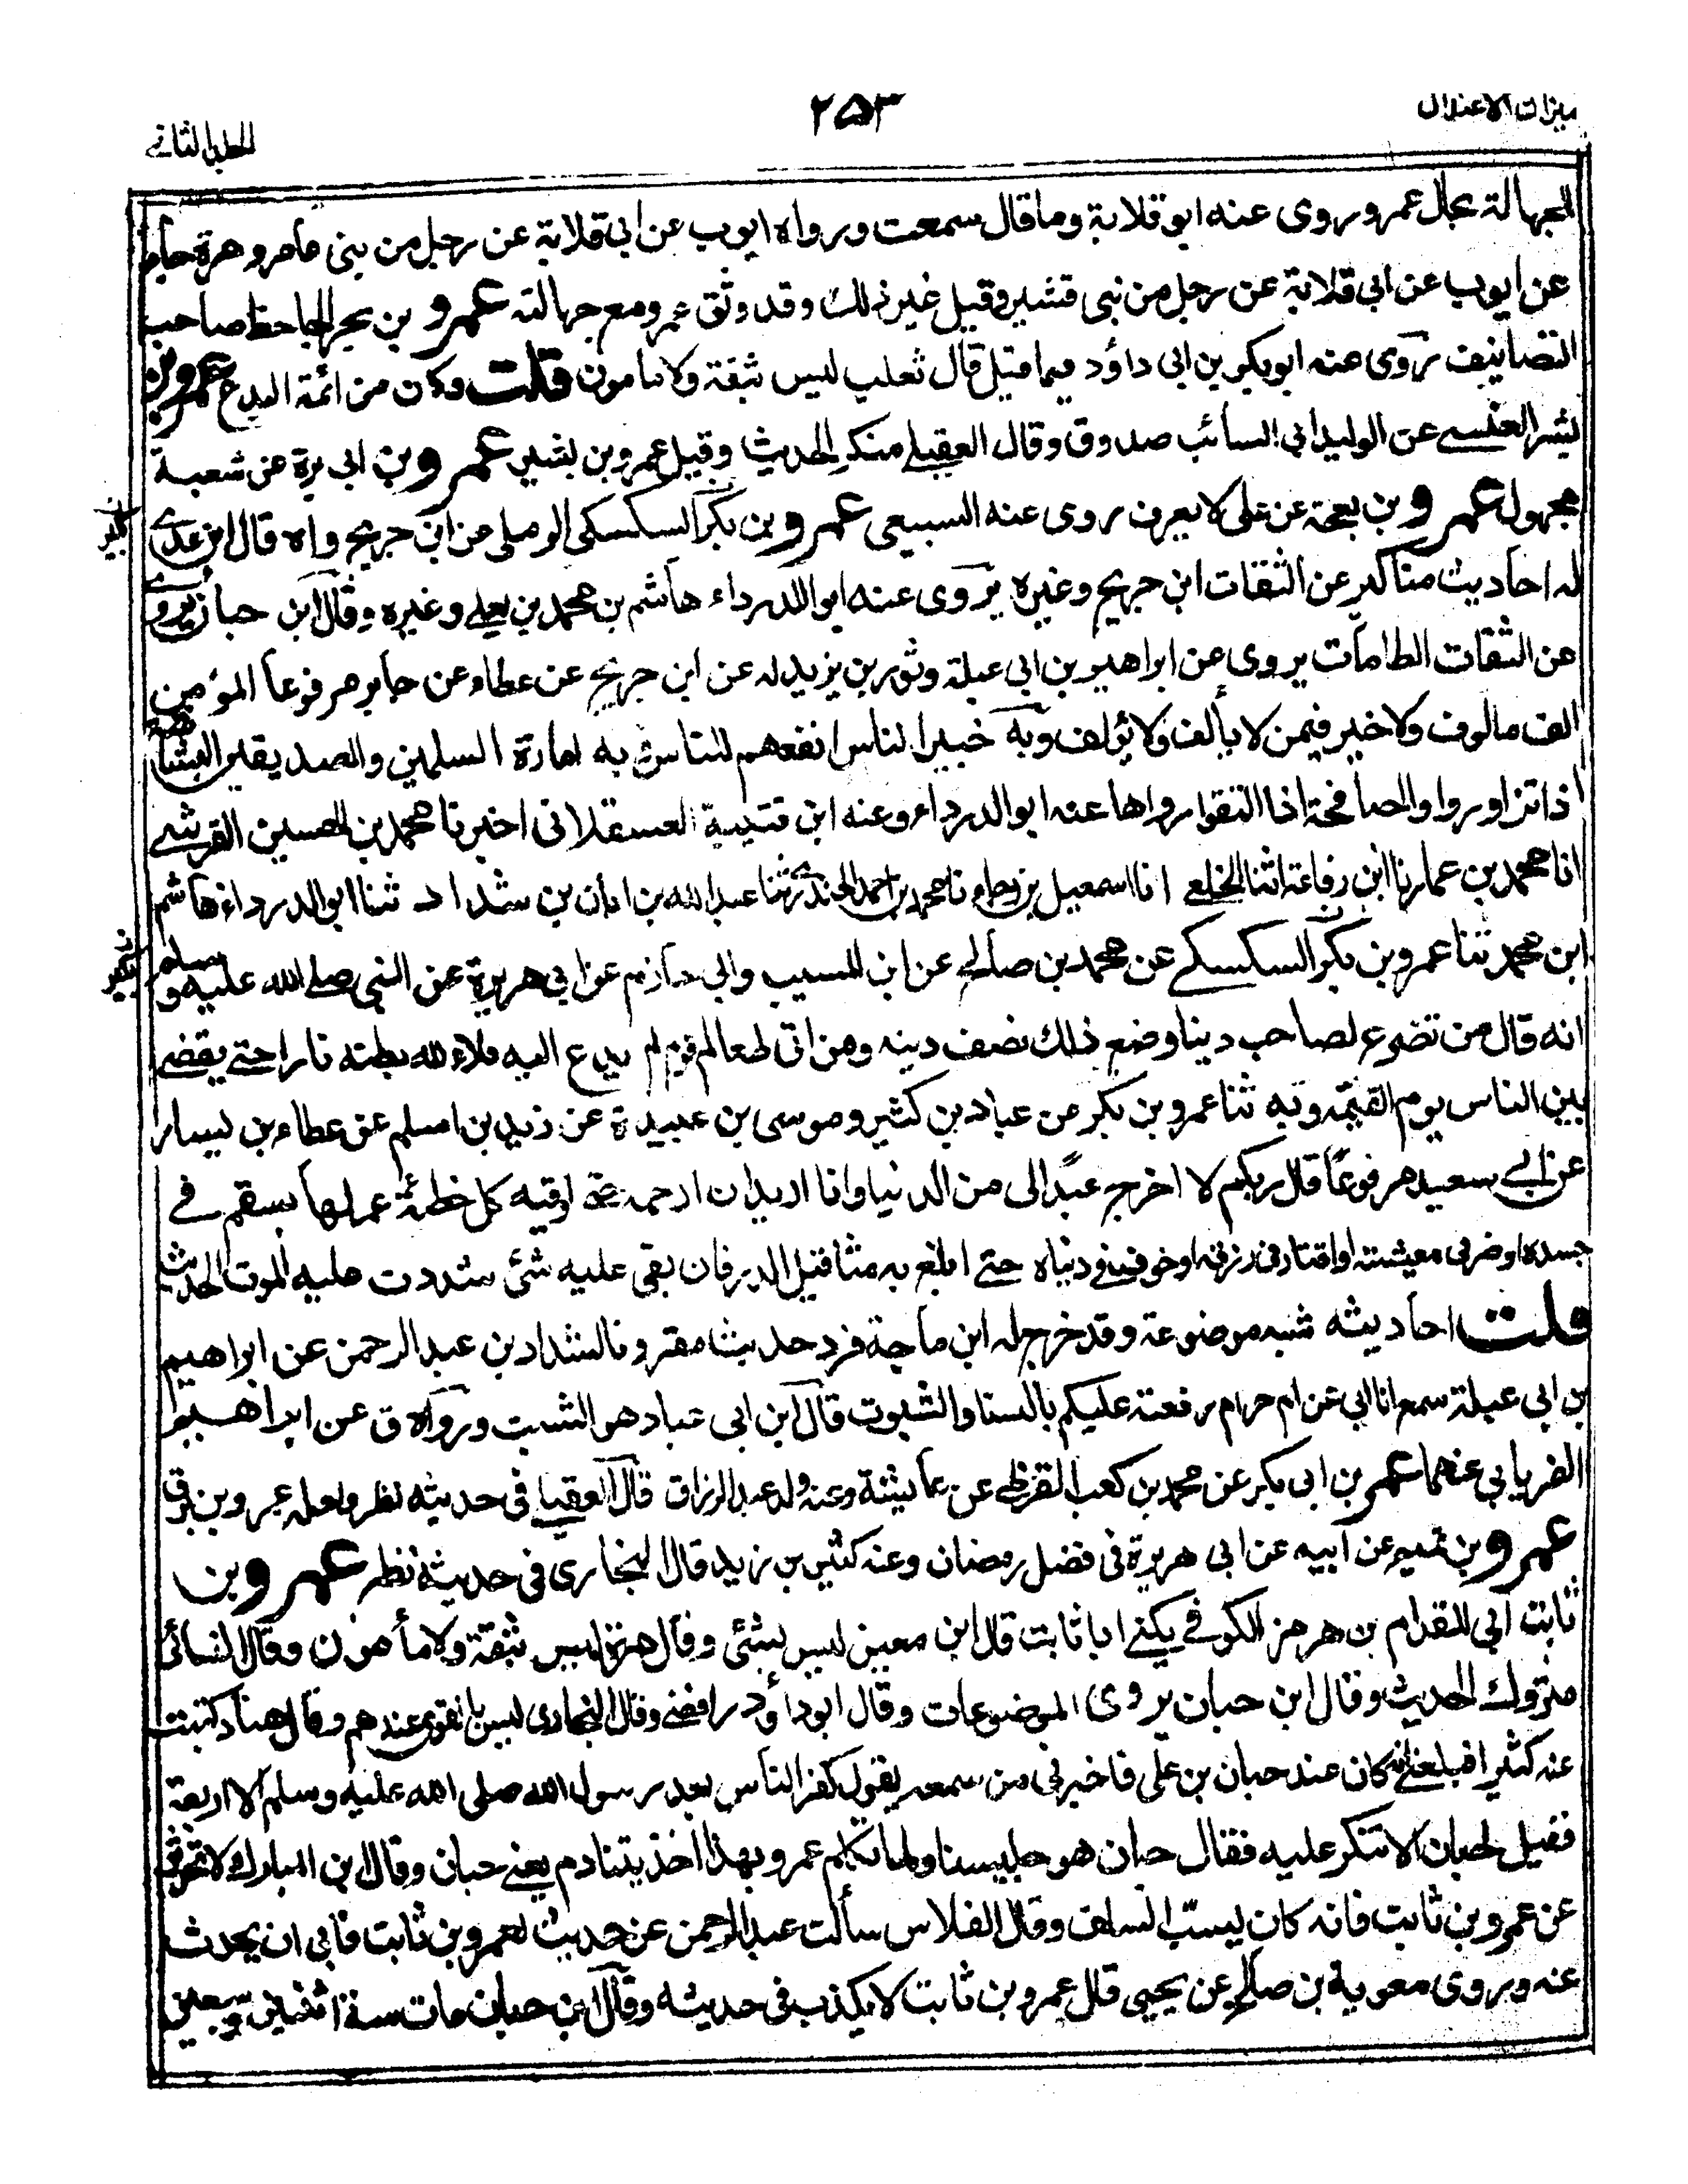 ميزان الاعتدال
٢٥٣
الجلد الثاني
المجهالة بحال عمرو روى عنه ابو قلابة وما قال سمعت ورواه ايوب عن ابي قلابة عن رجل من بنى عامر ومرة جاء
عن ايوب عن ابى قلابة عن رجل من نبى قشير وقيل غير ذلك وقد وثق عمرو مع جهالته عمرو بن بحر الجاحظ صاحب
التصانيف روى عنه ابو بكر بن ابى داؤد فيما قيل قال ثعلب ليس ثقة ولا مامون قلت وكان من ائمة البدع عمرو بن
بشر العنسے عن الوليد ابى السائب صدوق وقال العقيلے منكر الحديث وقيل عمرو بن بشير عمرو بن ابى برة عن شعبة
مجهول عمرو بن بعجة عن على لا يعرف روى عنه السبيعى عمرو بن بكر السكسكى الرملى عن ابن جريج واه قال ابن عدے
له احاديث مناكير عن الثقات ابن جريج وغيره يروى عنه ابو الدرداء هاشم بن محمد بن يعلے وغيره وقال ابن حبان يروى
عن الثقات الطامات يروى عن ابراهيم بن ابى عبلة وثور بن يزيد له عن ابن جريج عن عطاء عن جابر مرفوعا المؤمن
الف مالوف ولا خير فيمن لا يألف ولا يؤلف وبه خير الناس انفعهم للناس به امارة المسلمين والصديقين البشاشة
اذا تزاوروا والمصافحة اذا التقوا رواها عنه ابو الدرداء وعنه ابن قتيبة العسقلانى اخبرنا محمد بن الحسين القرشے
انا محمد بن عمار نا ابن رفاعة انثنا الخلعے انا اسمعيل بن رجاء نا محمد بن احمد الجندرے ثنا عبد الله بن ابان بن شداد ثنا ابو الدرداء هاشم
ابن محمد ثنا عمرو بن بكر السكسكے عن محمد بن صالح عن ابن المسيب وابي حازم عن ابى هريرة عن النبى صلے الله عليه وسلم
انه قال من تضوع لصاحب دينا وضع ذلك نصف دينه ومن اتى طعام قوم لم يدع اليه ملاء لله بطنه نارا حتے يقضے
بين الناس يوم القيمة وبه ثنا عمرو بن بكر عن عباد بن كثير وموسى بن عبيدة عن زيد بن اسلم عن عطاء بن يسار
عن ابے سعيد مرفوعا قال ربكم لا اخرج عبدا لى من الدنيا وانا اريد ان ارحمه حتى اوفيه كل خطيئة عملها بسقم فے
جسده او ضر فى معيشته او اقتار فى رزقه او خوف فى دنياه حتے ابلغ به مثاقيل الذر فان بقى عليه شئ شددت عليه الموت الحديث
قلت احاديثه شبه موضوعة وقد خرج له ابن ماجة فرد حديث مقرونا لشداد بن عبد الرحمن عن ابراهيم
بن ابى عبلة سمعا نا ابي عن ام حرام رفعته عليكم بالسنا والسنوت قال ابن ابى عباد هو الشبت ورواه ق عن ابراهيم
الفريابى عنهما عمر بن ابى بكر عن محمد بن كعب القرظے عن عائشة وعنه ولد عبد الرزاق قال العقيلے فى حديثه نظر ولعله عمرو بن برق
عمرو بن تميم عن ابيه عن ابى هريرة فى فضل رمضان وعنه كثير بن زيد قال البخارى فى حديثه نظر عمرو بن
ثابت ابى المقدام بن هرمز الكوفے يكنے ابا ثابت قال ابن معين ليس بشئى وقال مرة ليس ثقة ولا مأمون وقال النسائى
متروك الحديث وقال ابن حبان يروى الموضوعات وقال ابو داؤد رافضے وقال البخارى ليس بالقوى عندهم وقال هناد كتبت
عنه كثيرا فبلغنے انه كان عند حبان بن على فاخبرنى من سمعه يقول كفر الناس بعد رسول الله صلى الله عليه وسلم الا اربعة
فقيل لحبان الا تنكر عليه فقال حبان هو جليسنا ولما تكلم عمرو بهذا اخذ يتنادم يعنے حبان وقال ابن المبارك لا تحدثوا
عن عمرو بن ثابت فانه كان يسبّ السلف وقال الفلاس سألت عبد الرحمن عن حديث لعمرو بن ثابت فابى ان يحدث
عنه وروى معوية بن صالح عن يحيى قال عمرو بن ثابت لا يكذب فى حديثه وقال ابن حبان مات سنة اثنين وسبعين